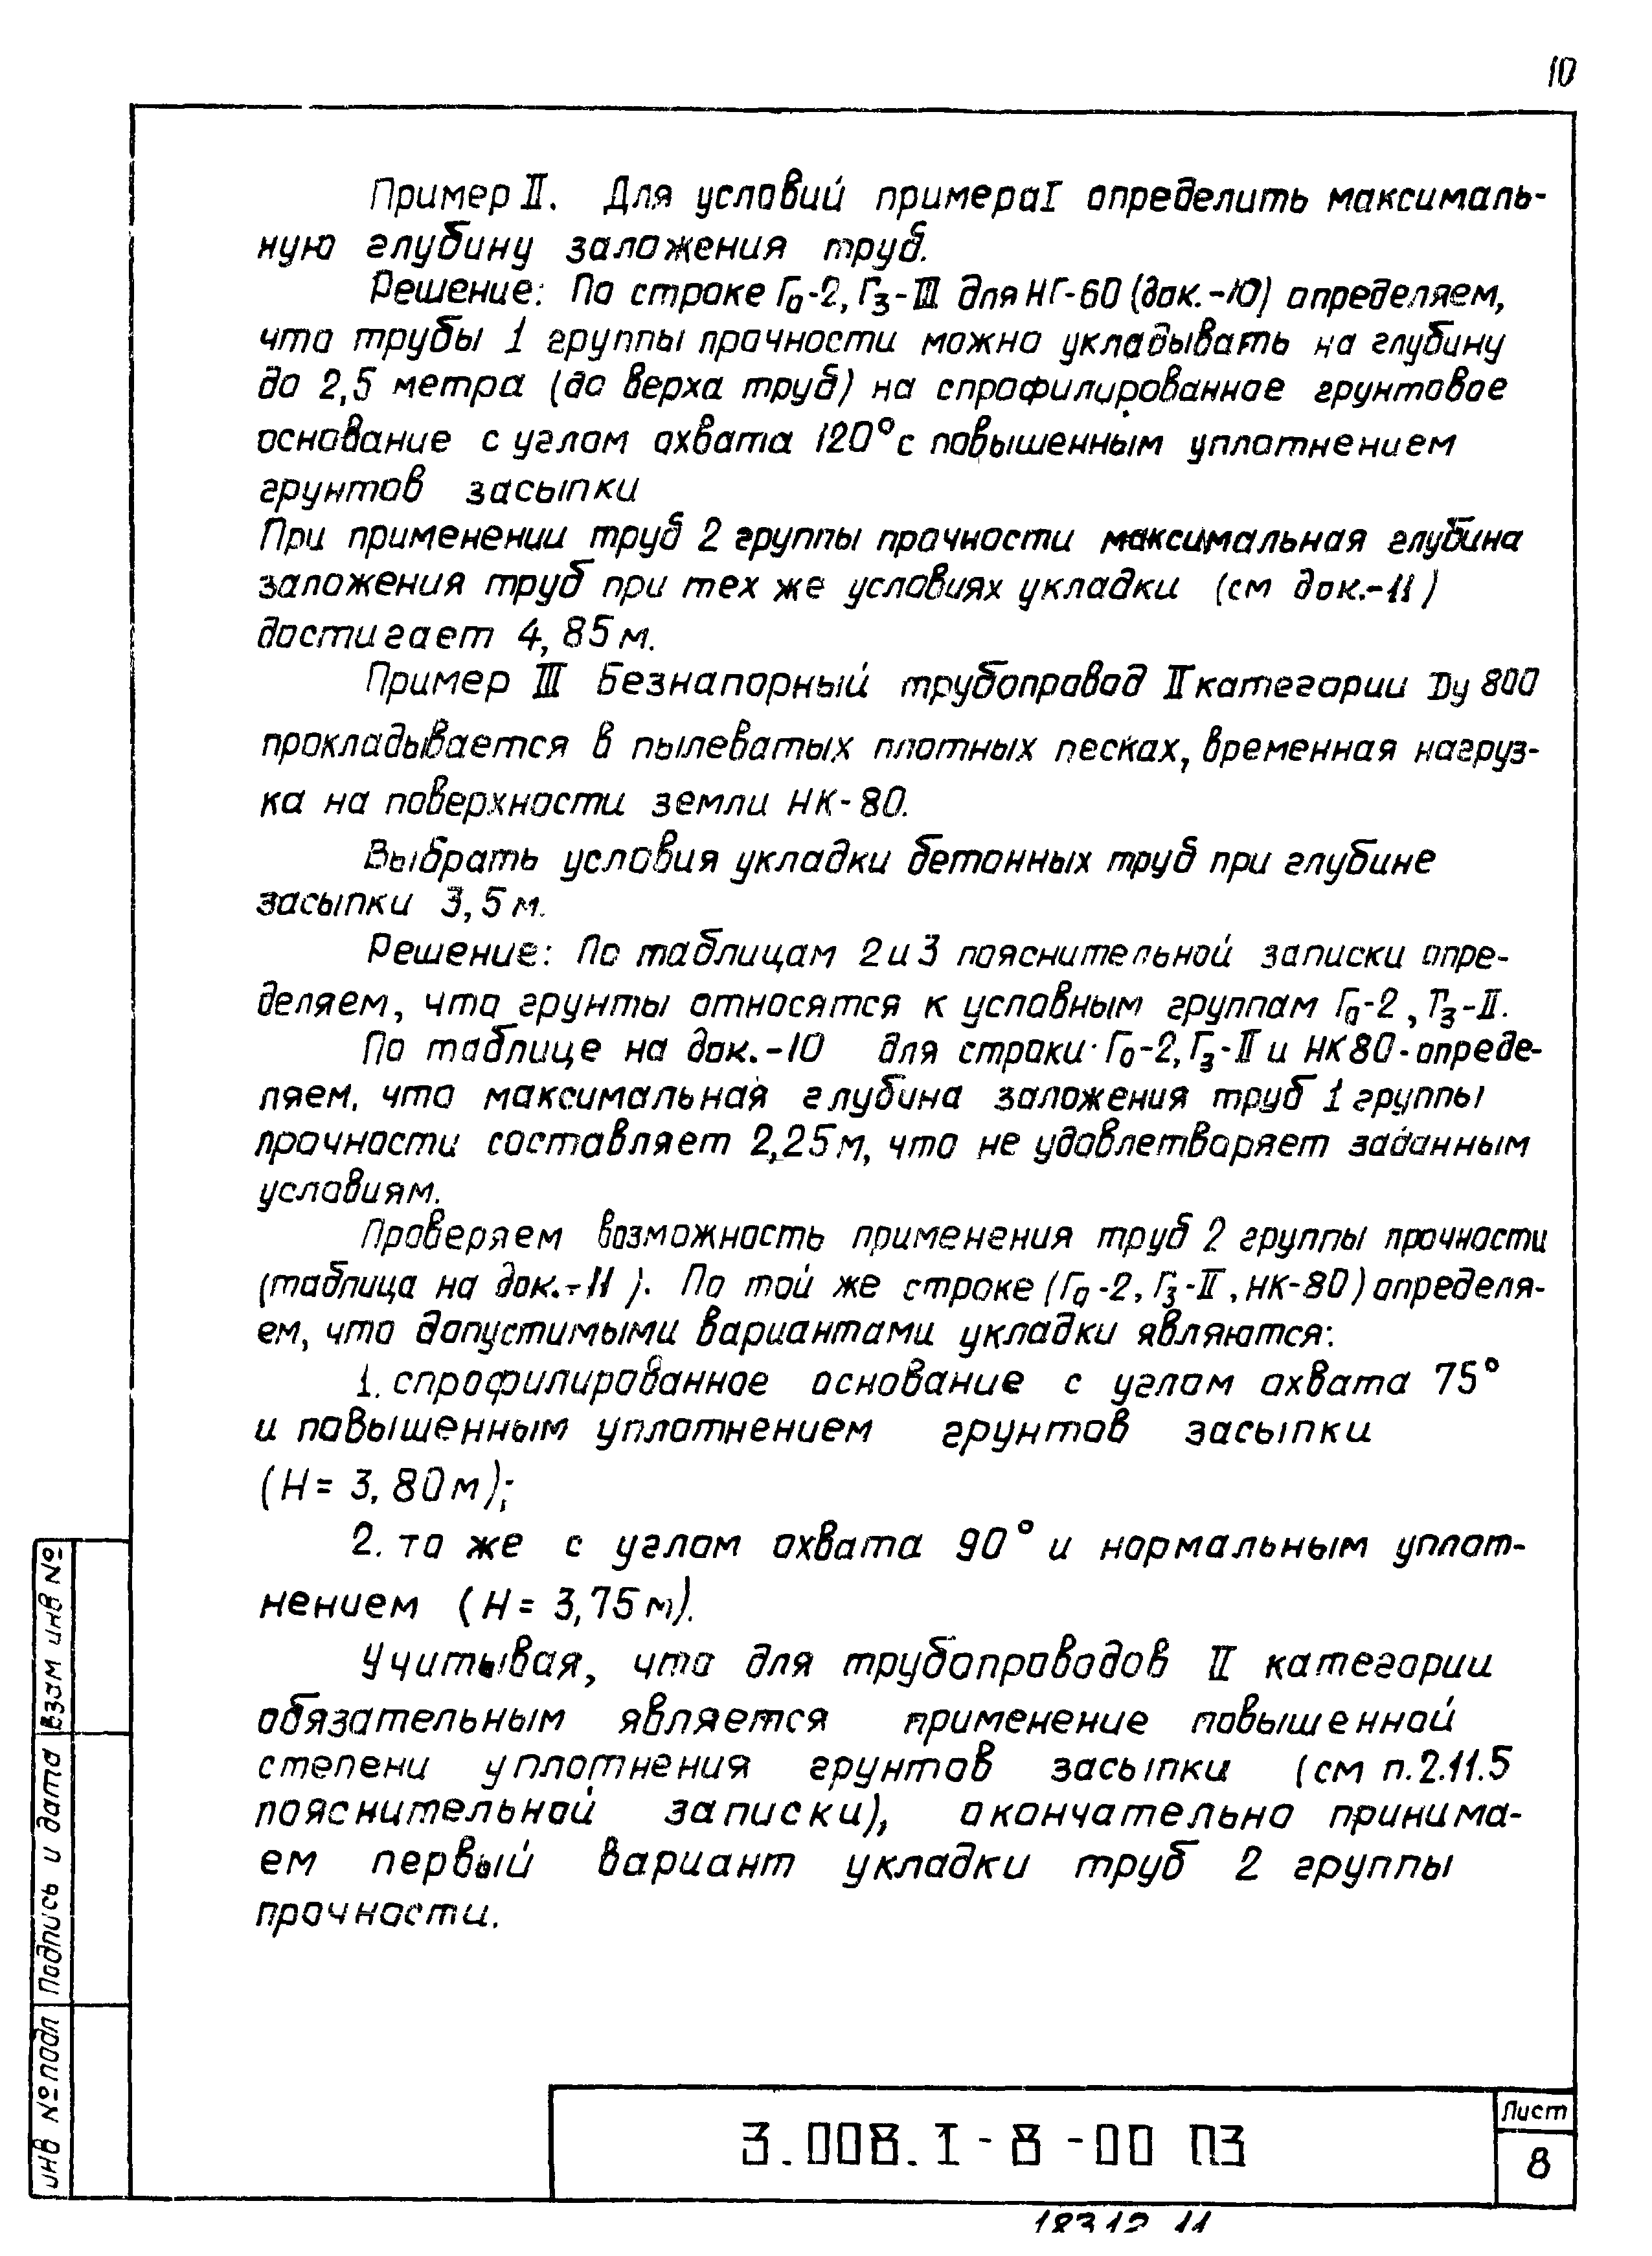 10
Пример II. Для условий примера I определить максималь-
ную глубину заложения труб.
Решение: По строке Го-2, Гз-III для НГ-60 (док.-10) определяем,
что трубы 1 группы прочности можно укладывать на глубину
до 2,5 метра (до верха труб) на спрофилированное грунтовое
основание с углом охвата 120° с повышенным уплотнением
грунтов засыпки
При применении труб 2 группы прочности максимальная глубина
заложения труб при тех же условиях укладки (см док.-11)
достигает 4,85 м.
Пример III Безнапорный трубопровод II категории Dу 800
прокладывается в пылеватых плотных песках, временная нагруз-
ка на поверхности земли НК-80.
Выбрать условия укладки бетонных труб при глубине
засыпки 3,5 м.
Решение: По таблицам 2 и 3 пояснительной записки опре-
деляем, что грунты относятся к условным группам Го-2, Гз-II.
По таблице на док.-10 для строки Го-2, Гз-II и НК80-опреде-
ляем, что максимальная глубина заложения труб 1 группы
прочности составляет 2,25 м, что не удовлетворяет заданным
условиям.
Проверяем возможность применения труб 2 группы прочности
(таблица на док.-11). По той же строке (Го-2, Гз-II, НК-80) определя-
ем, что допустимыми вариантами укладки являются:
1. спрофилированное основание с углом охвата 75°
и повышенным уплотнением грунтов засыпки
(Н = 3,80 м);
2. то же с углом охвата 90° и нормальным уплот-
нением (Н = 3,75 м).
Учитывая, что для трубопроводов II категории
обязательным является применение повышенной
степени уплотнения грунтов засыпки (см п.2.11.5
пояснительной записки), окончательно принима-
ем первый вариант укладки труб 2 группы
прочности.
Инв № подл Подпись и дата Взам инв №
3.008.1-8-00 ПЗ
Лист
8
18312 11